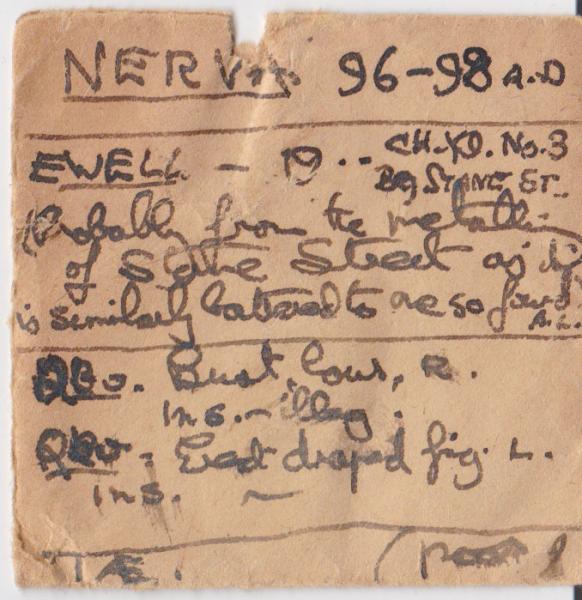 NERVA. 96-98 A.D
EWELL - 19 .. CH.YD. No.3
Bg STANE ST.
(Probably from the metalling
of Stane Street as it
is similarly battered to one so found
A.L.
OBV. Bust, laur, R.
ins. - illeg.
REV. Erect draped fig. L.
ins. ~
Æ. (poor)